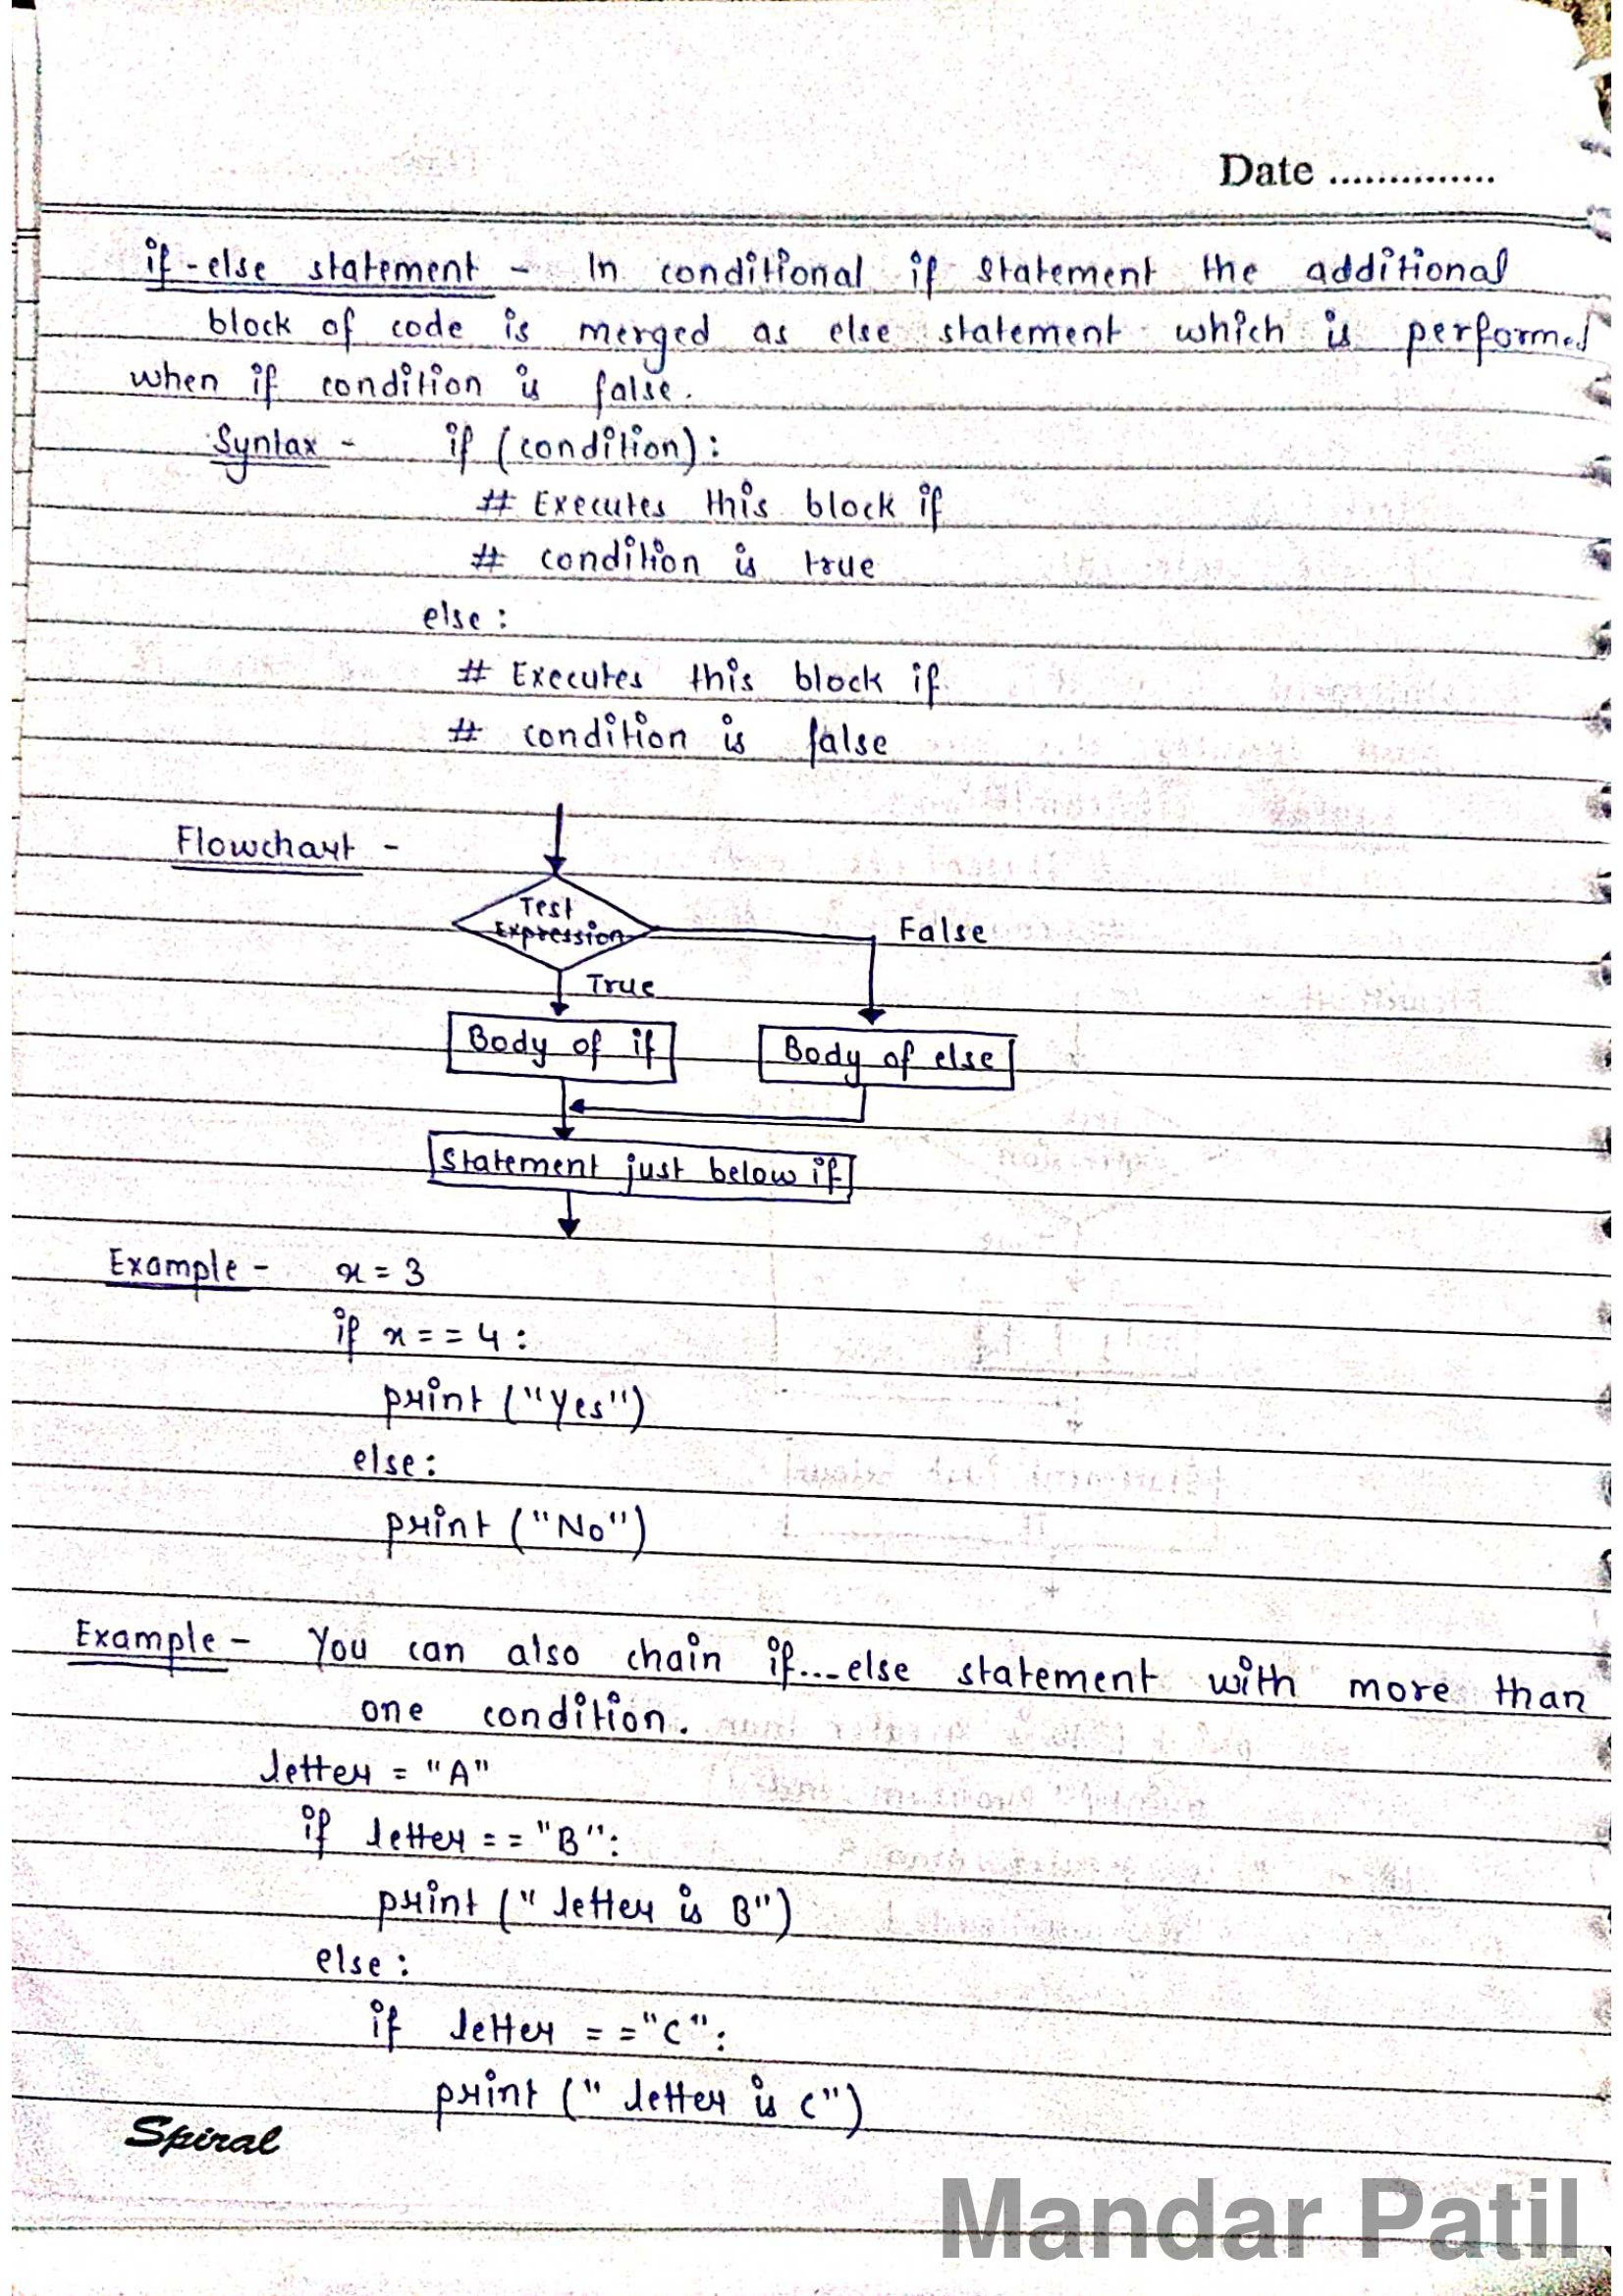 Date ..............
if-else statement - In conditional if statement the additional
block of code is merged as else statement which is performed
when if condition is false.
Syntax - if (condition):
# Executes this block if
# condition is true
else:
# Executes this block if
# condition is false
Flowchart -
Test
Expression
False
True
Body of if
Body of else
Statement just below if
Example - x = 3
if x == 4:
print ("Yes")
else:
print ("No")
Example - You can also chain if...else statement with more than
one condition.
letter = "A"
if letter == "B":
print (" letter is B")
else:
if letter == "C":
print (" letter is C")
Spiral
Mandar Patil